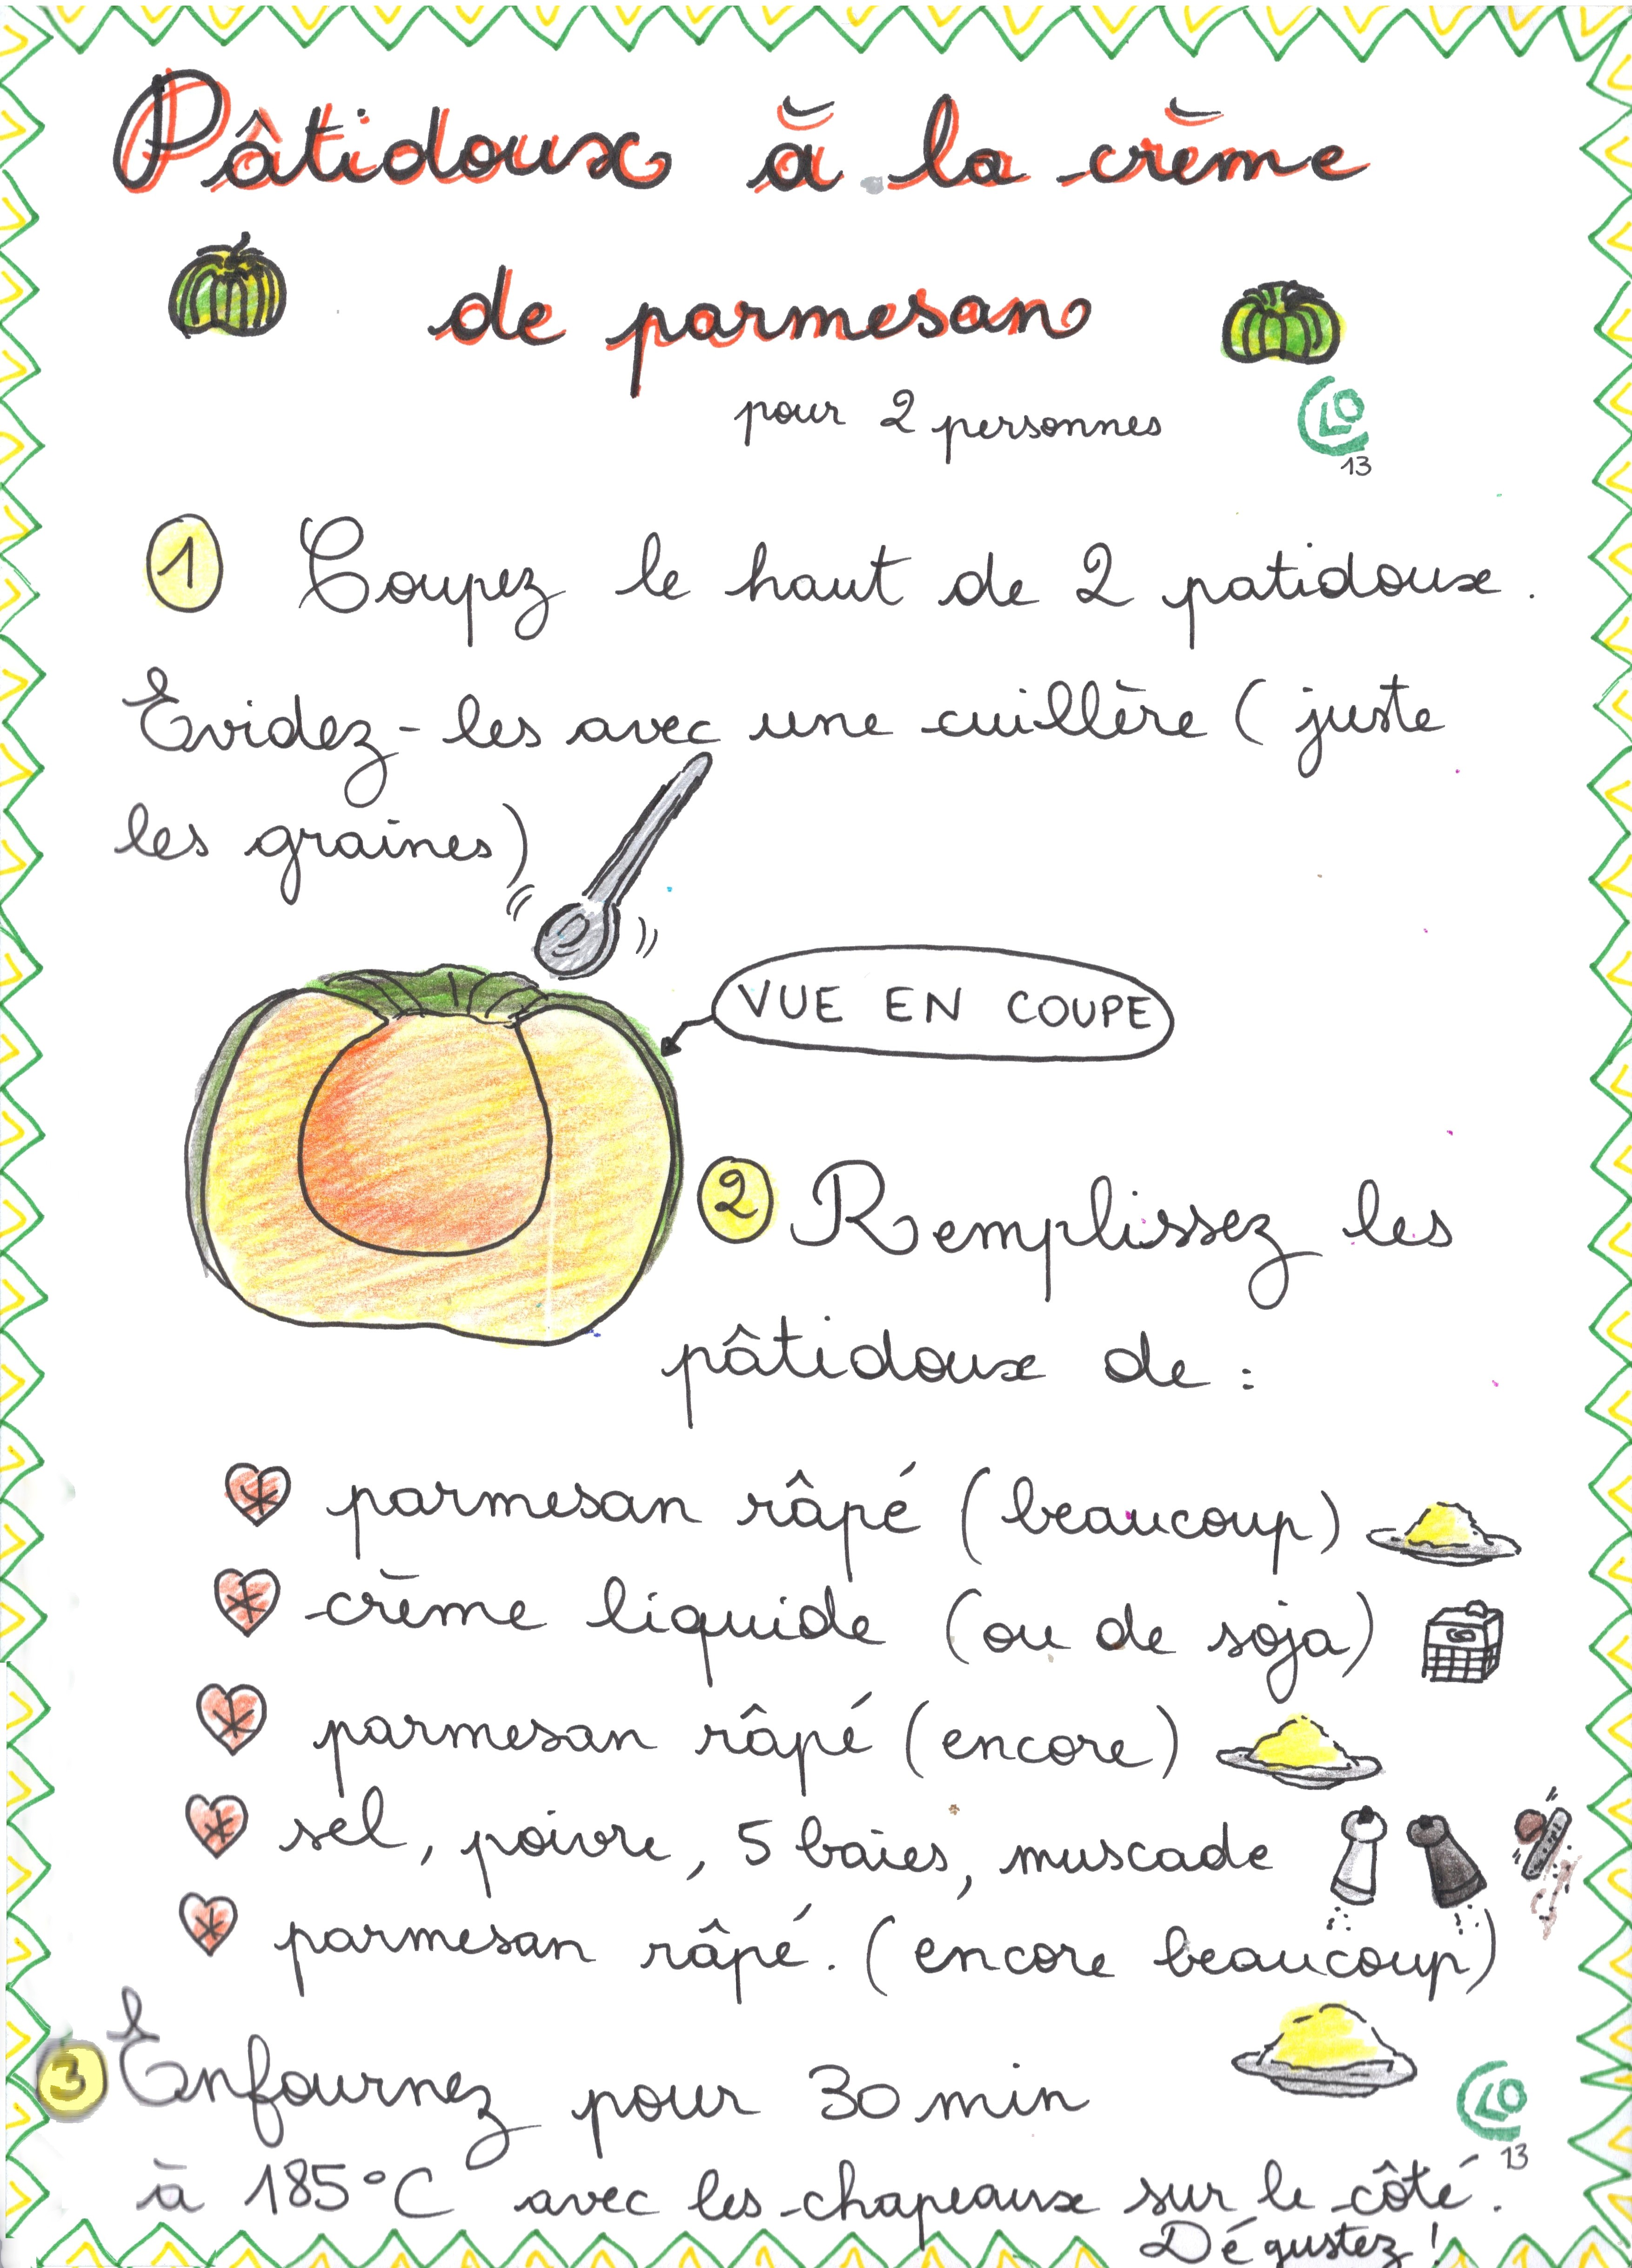 Pâtidoux à la crème
de parmesan
pour 2 personnes
CLO
13
1 Coupez le haut de 2 patidoux.
Evidez-les avec une cuillère (juste
les graines)
VUE EN COUPE
2 Remplissez les
pâtidoux de :
parmesan râpé (beaucoup)
crème liquide (ou de soja)
parmesan râpé (encore)
sel, poivre, 5 baies, muscade
parmesan râpé. (encore beaucoup)
3 Enfournez pour 30 min
CLO
13
à 185°C avec les chapeaux sur le côté.
Dégustez !